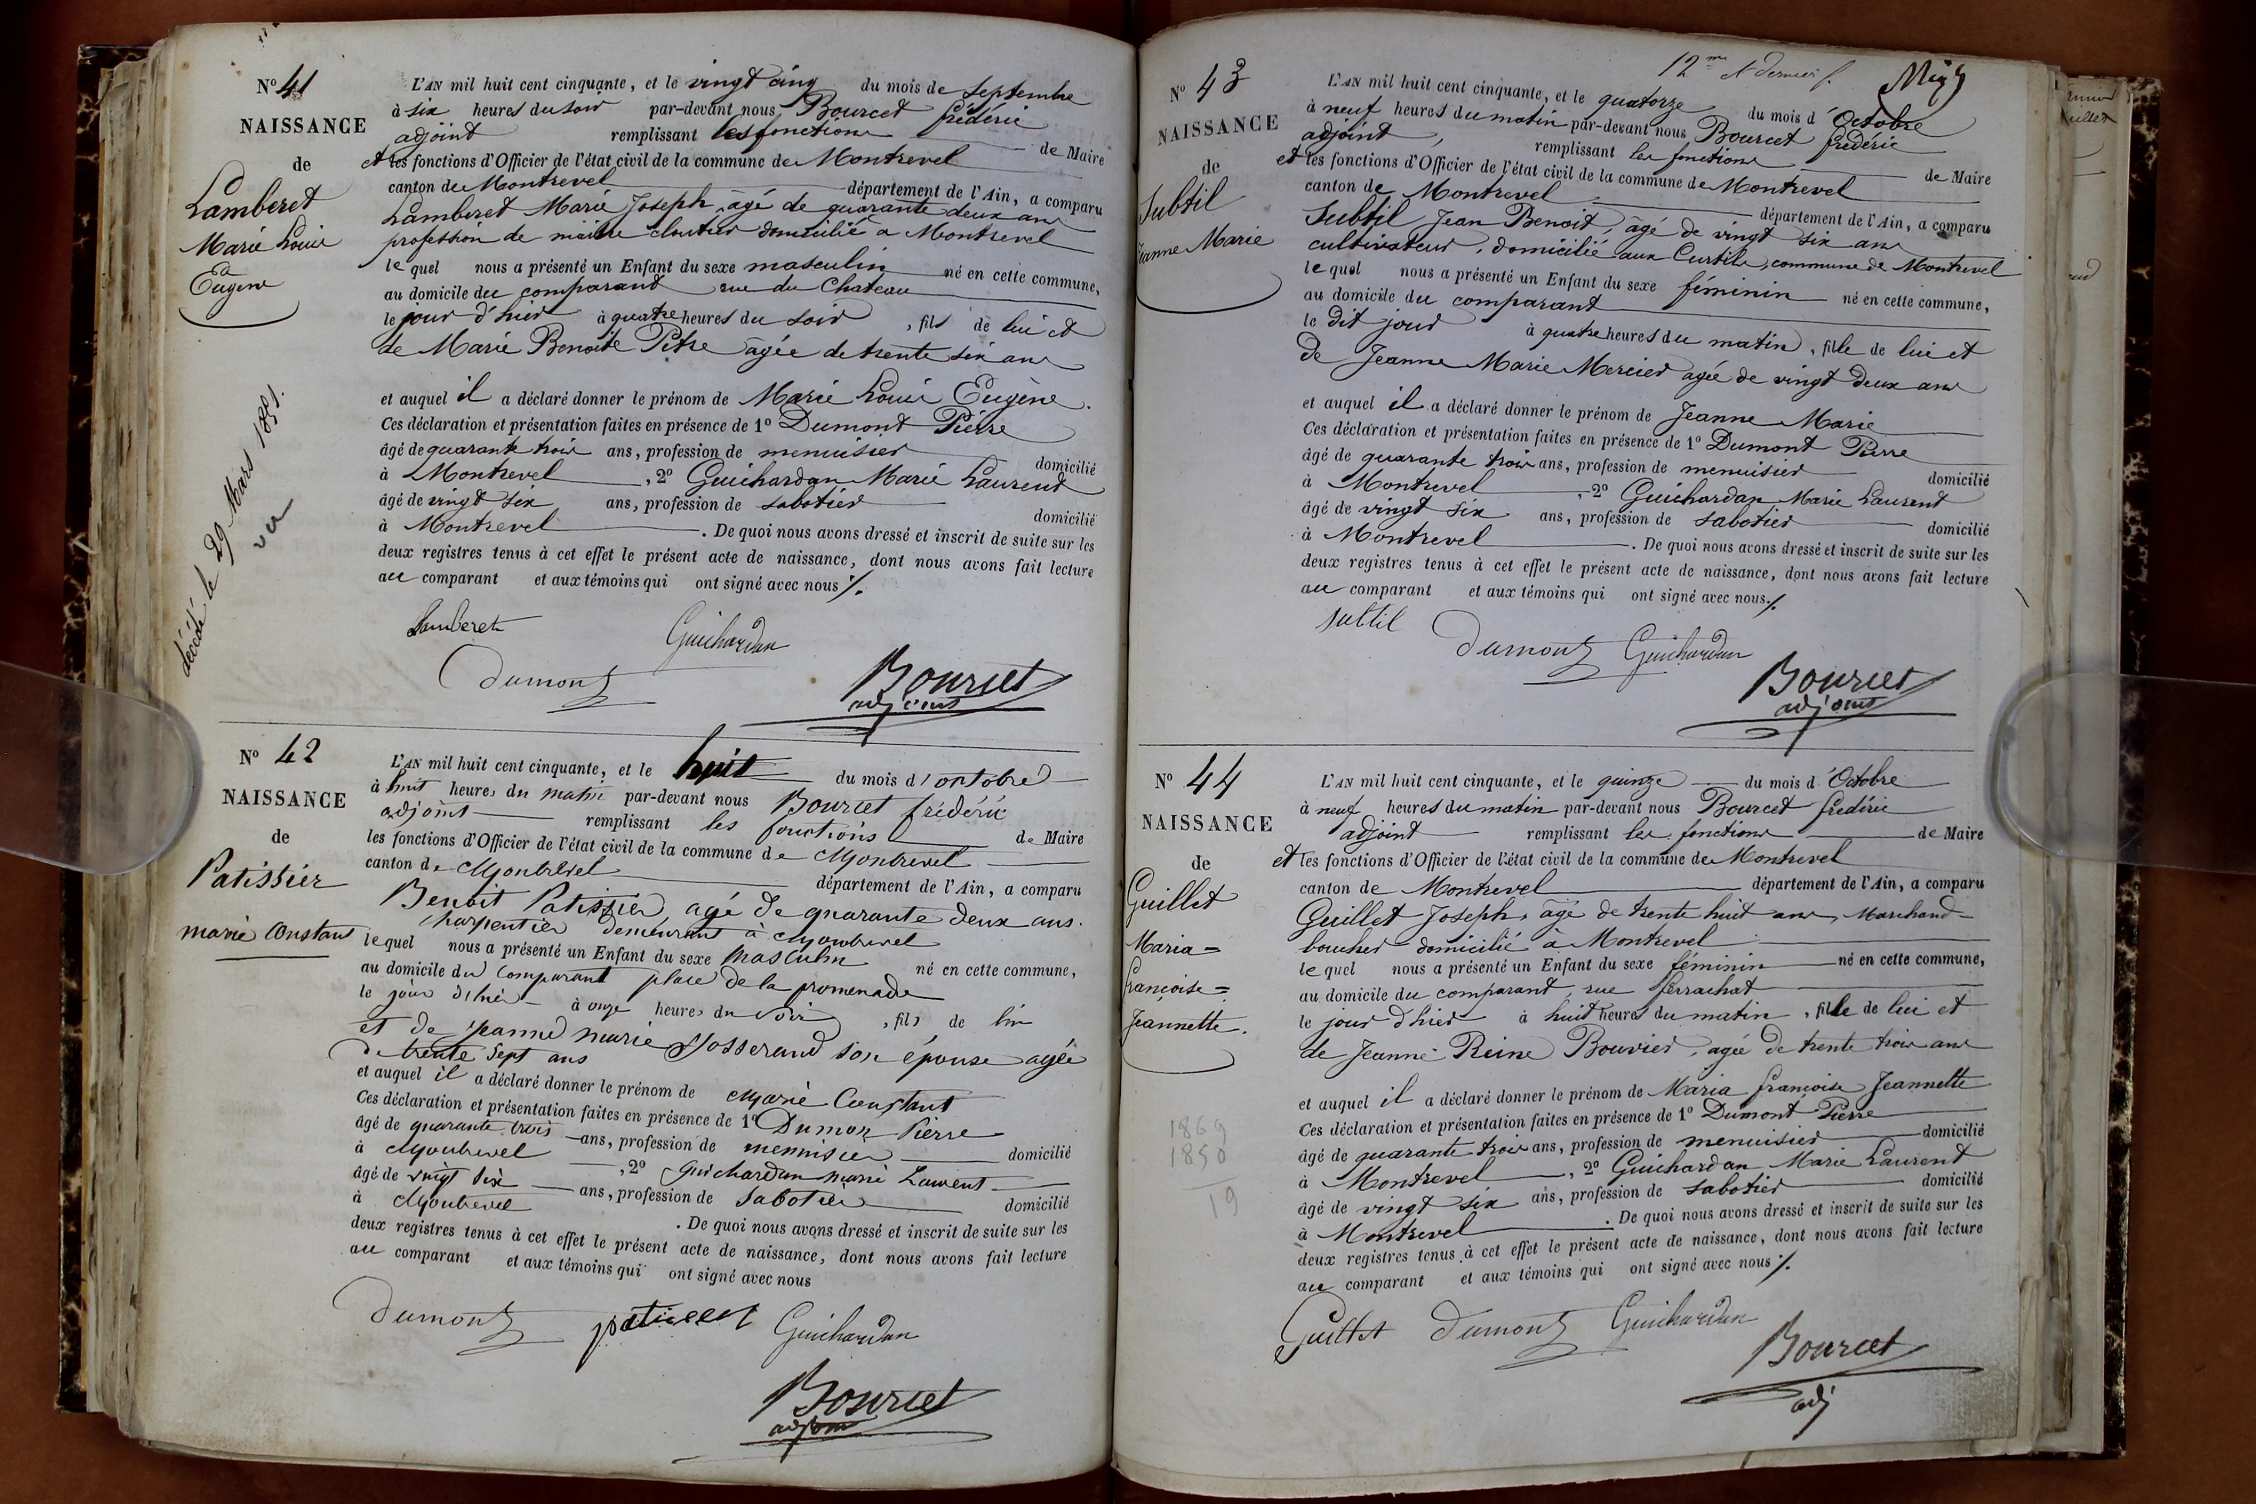 N° 41
NAISSANCE
de
Lamberet
Marie Louis
Eugène
décédé le 29 Mars 1851.
L'AN mil huit cent cinquante, et le vingt cinq du mois de Septembre
à six heures du soir par-devant nous Bourcet frédéric
adjoint remplissant les fonctions de Maire
et les fonctions d'Officier de l'état civil de la commune de Montrevel
canton de Montrevel département de l'Ain, a comparu
Lamberet Marie Joseph, âgé de quarante deux ans
profession de maître cloutier domicilié à Montrevel
le quel nous a présenté un Enfant du sexe masculin né en cette commune,
au domicile du comparant rue du Chateau
le jour d'hier à quatre heures du soir, fils de lui et
de Marie Benoite Pitre âgée de trente six ans
et auquel il a déclaré donner le prénom de Marie Louis Eugène.
Ces déclaration et présentation faites en présence de 1° Dumont Pierre
âgé de quarante trois ans, profession de menuisier domicilié
à Montrevel, 2° Guichardan Marie Laurent
âgé de vingt six ans, profession de sabotier domicilié
à Montrevel. De quoi nous avons dressé et inscrit de suite sur les
deux registres tenus à cet effet le présent acte de naissance, dont nous avons fait lecture
au comparant et aux témoins qui ont signé avec nous ./.
Lamberet Guichardan
Dumont Bourcet
adjoint
N° 42
NAISSANCE
de
Patissier
marie Constant
L'AN mil huit cent cinquante, et le huit du mois d'octobre
à huit heures du matin par-devant nous Bourcet frédéric
adjoint remplissant les fonctions de Maire
les fonctions d'Officier de l'état civil de la commune de Montrevel
canton de Montrevel département de l'Ain, a comparu
Benoit Patissier, agé de quarante deux ans.
charpentier demeurant à Montrevel
lequel nous a présenté un Enfant du sexe masculin né en cette commune,
au domicile du comparant place de la promenade
le jour d'hier à onze heures du soir, fils de lui
et de jeanne marie Josserand son épouse agée
de trente sept ans
et auquel il a déclaré donner le prénom de Marie Constant
Ces déclaration et présentation faites en présence de 1° Dumon Pierre
âgé de quarante trois ans, profession de menuisier domicilié
à Montrevel, 2° Guichardan marie Laurent
âgé de vingt six ans, profession de Sabotier domicilié
à Montrevel. De quoi nous avons dressé et inscrit de suite sur les
deux registres tenus à cet effet le présent acte de naissance, dont nous avons fait lecture
au comparant et aux témoins qui ont signé avec nous
Dumont Guichardan
Bourcet
adjoint
12me et dernier f.
N° 43
NAISSANCE
de
Subtil
Jeanne Marie
L'AN mil huit cent cinquante, et le quatorze du mois d'Octobre
à neuf heures du matin par-devant nous Bourcet frédéric
adjoint, remplissant les fonctions de Maire
et les fonctions d'Officier de l'état civil de la commune de Montrevel
canton de Montrevel département de l'Ain, a comparu
Subtil Jean Benoit, âgé de vingt six ans
cultivateur, domicilié aux Curtils, commune de Montrevel
lequel nous a présenté un Enfant du sexe féminin né en cette commune,
au domicile du comparant
le dit jour à quatre heures du matin, fille de lui et
de Jeanne Marie Mercier agée de vingt deux ans
et auquel il a déclaré donner le prénom de Jeanne Marie
Ces déclaration et présentation faites en présence de 1° Dumont Pierre
âgé de quarante trois ans, profession de menuisier domicilié
à Montrevel, 2° Guichardan Marie Laurent
âgé de vingt six ans, profession de sabotier domicilié
à Montrevel. De quoi nous avons dressé et inscrit de suite sur les
deux registres tenus à cet effet le présent acte de naissance, dont nous avons fait lecture
au comparant et aux témoins qui ont signé avec nous ./.
subtil Dumont Guichardan
Bourcet
adjoint
N° 44
NAISSANCE
de
Guillet
Maria=
françoise=
Jeannette.
1869
1850
19
L'AN mil huit cent cinquante, et le quinze du mois d'Octobre
à neuf heures du matin par-devant nous Bourcet frédéric
adjoint remplissant les fonctions de Maire
et les fonctions d'Officier de l'état civil de la commune de Montrevel
canton de Montrevel département de l'Ain, a comparu
Guillet Joseph, âgé de trente huit ans, Marchand
boucher domicilié à Montrevel
lequel nous a présenté un Enfant du sexe féminin né en cette commune,
au domicile du comparant, rue ferrachat
le jour d'hier à huit heures du matin, fille de lui et
de Jeanne Reine Bouvier, agée de trente trois ans
et auquel il a déclaré donner le prénom de Maria françoise Jeannette
Ces déclaration et présentation faites en présence de 1° Dumont Pierre
âgé de quarante trois ans, profession de menuisier domicilié
à Montrevel, 2° Guichardan Marie Laurent
âgé de vingt six ans, profession de sabotier domicilié
à Montrevel. De quoi nous avons dressé et inscrit de suite sur les
deux registres tenus à cet effet le présent acte de naissance, dont nous avons fait lecture
au comparant et aux témoins qui ont signé avec nous ./.
Guillet Dumont Guichardan
Bourcet
adj